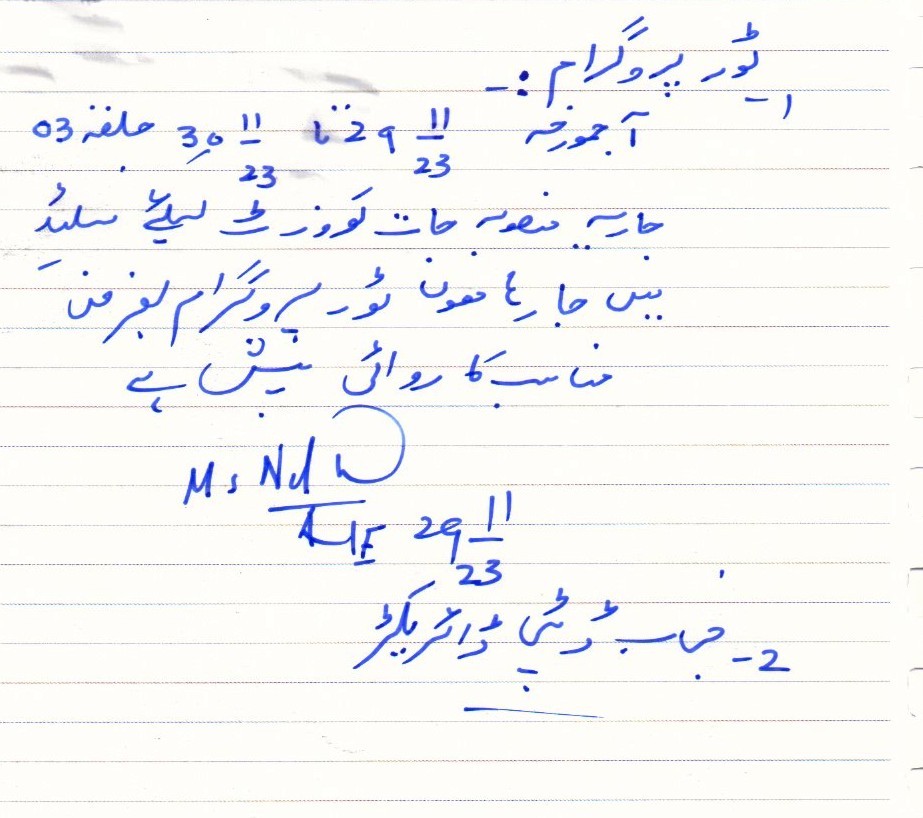 1- ٹور پروگرام :-
آج مورخہ 29 11/23 تا 30 11/23 حلقہ 03
جاریہ منصوبہ جات کو وزٹ کیلئے
میں جا رہا ہوں ٹور پروگرام بغرض
مناسب کاروائی پیش ہے
29 11/23
2- جناب ڈپٹی ڈائریکٹر